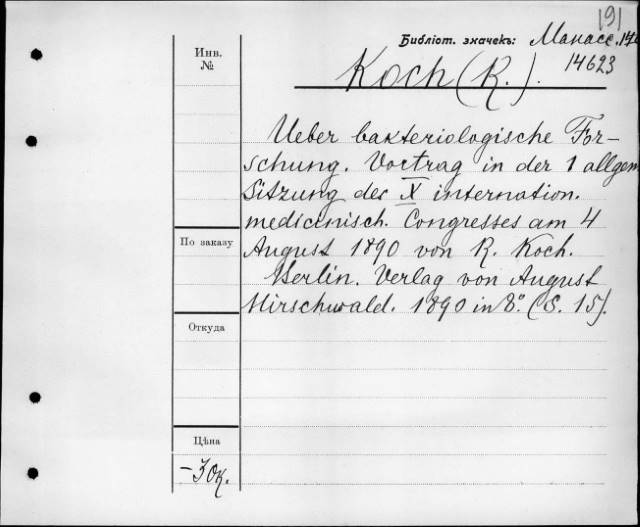 191
Библіот. значекъ: Манасс. 14
14623
Инв.
№
Koch (R.).
Ueber bakteriologische For-
schung. Vortrag in der 1 allgem
Sitzung des X internation.
medicinisch. Congresses am 4
По заказу
August 1890 von R. Koch.
Berlin. Verlag von August
Hirschwald. 1890 in 8°. (S. 15).
Откуда
Цѣна
-30к.